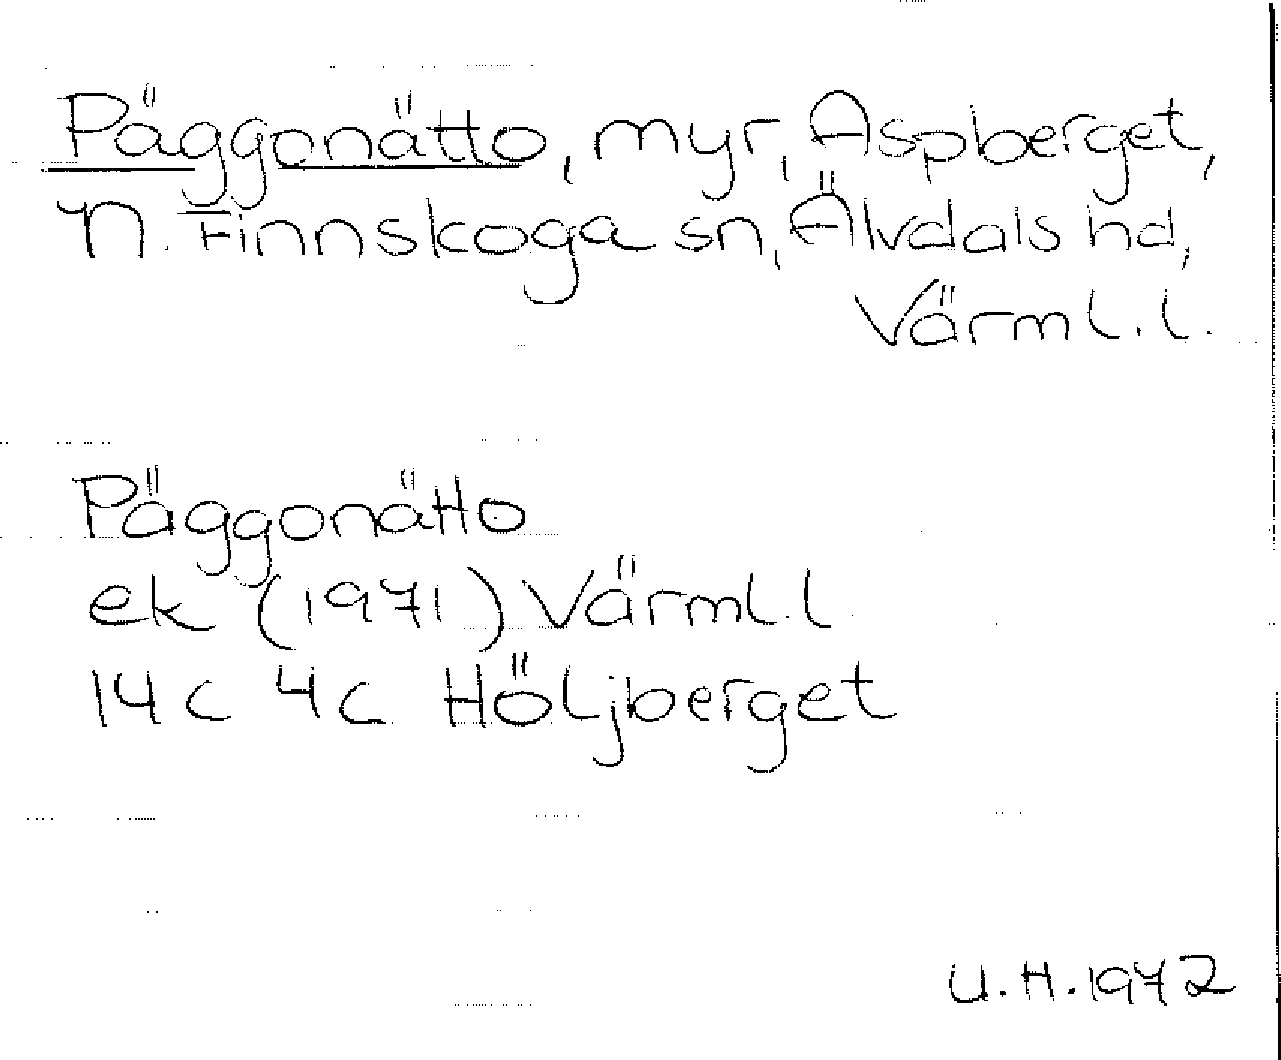 Päggonätto, myr, Aspberget,
N. Finnskoga sn, Älvdals hd,
Värml. l.
Päggonätto
ek (1971) Värml. l
14c 4c Höljberget
U.H. 1972